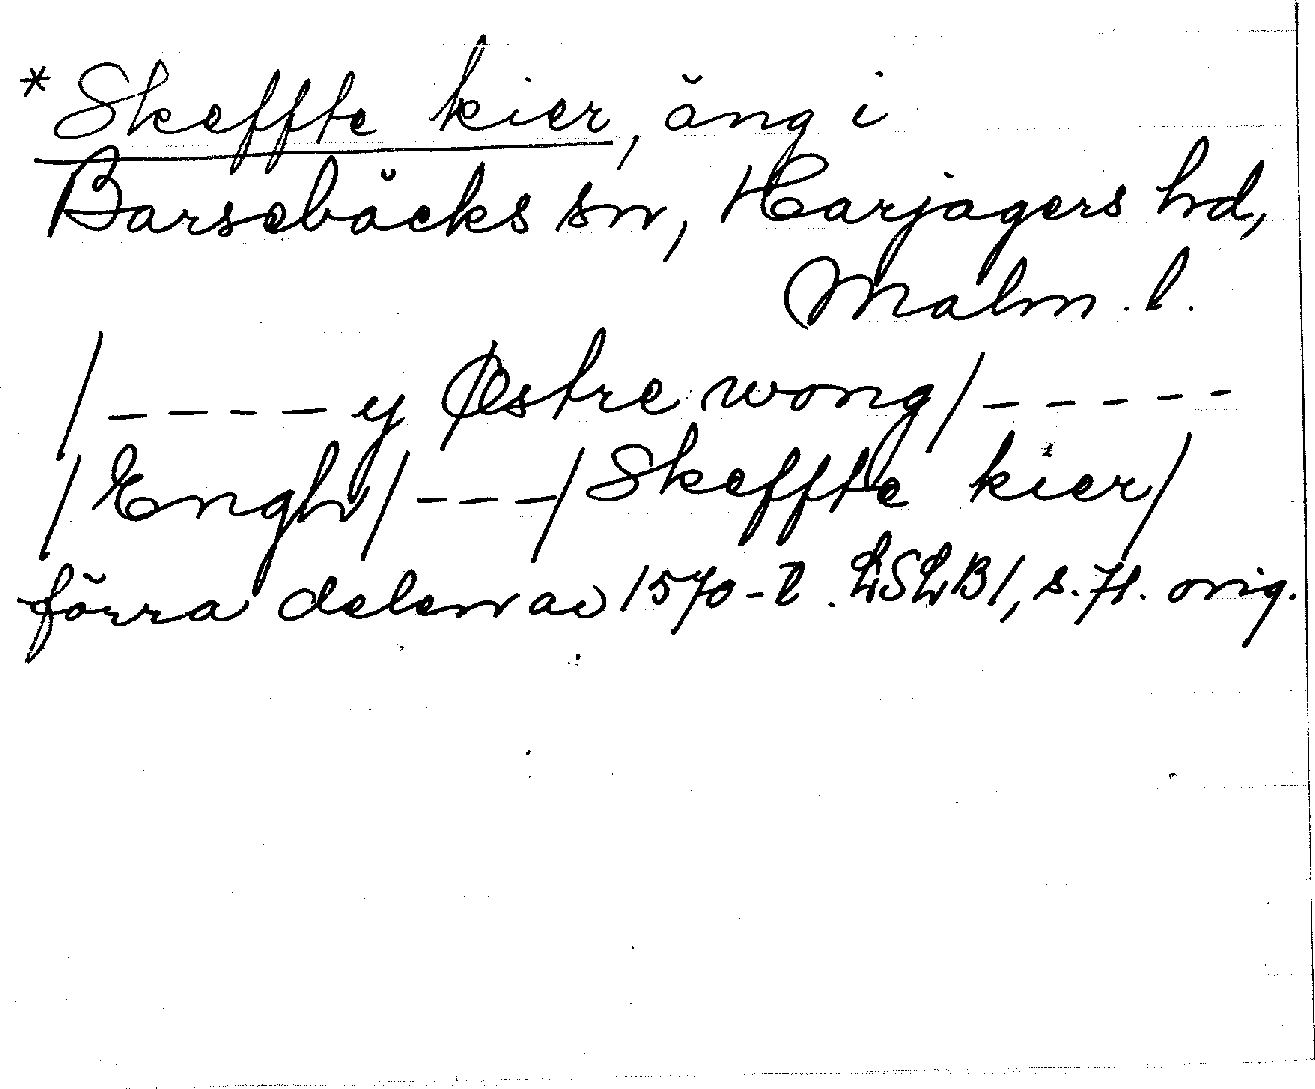 * Skeffte kier, äng i
Barsebäcks sn, Harjagers hd,
Malm. l.
/-----y Østre wong/-----
/Engh/---/Skeffte kier/
förra delen av 1570-t. LSLB1, s. 71. orig.